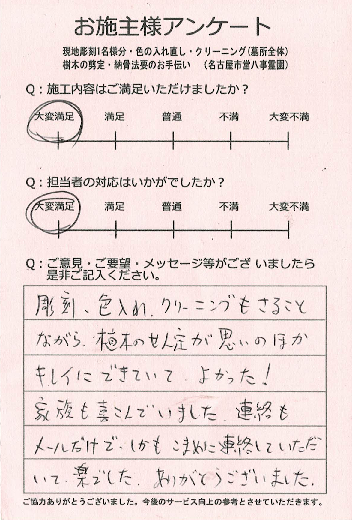 お施主様アンケート
現地彫刻1名様分・色の入れ直し・クリーニング(墓所全体)
樹木の剪定・納骨法要のお手伝い (名古屋市営八事霊園)
Q:施工内容はご満足いただけましたか?
大変満足 満足 普通 不満 大変不満
Q:担当者の対応はいかがでしたか?
大変満足 満足 普通 不満 大変不満
Q:ご意見・ご要望・メッセージ等がござ いましたら
是非ご記入ください。
彫刻、色入れ、クリーニングもさること
ながら、植木のせん定が思いのほか
キレイにできていて、よかった!
家族も喜こんでいました。連絡も
メールだけで、しかもこまめに連絡していただ
いて、楽でした。ありがとうございました。
ご協力ありがとうございました。今後のサービス向上の参考とさせていただきます。